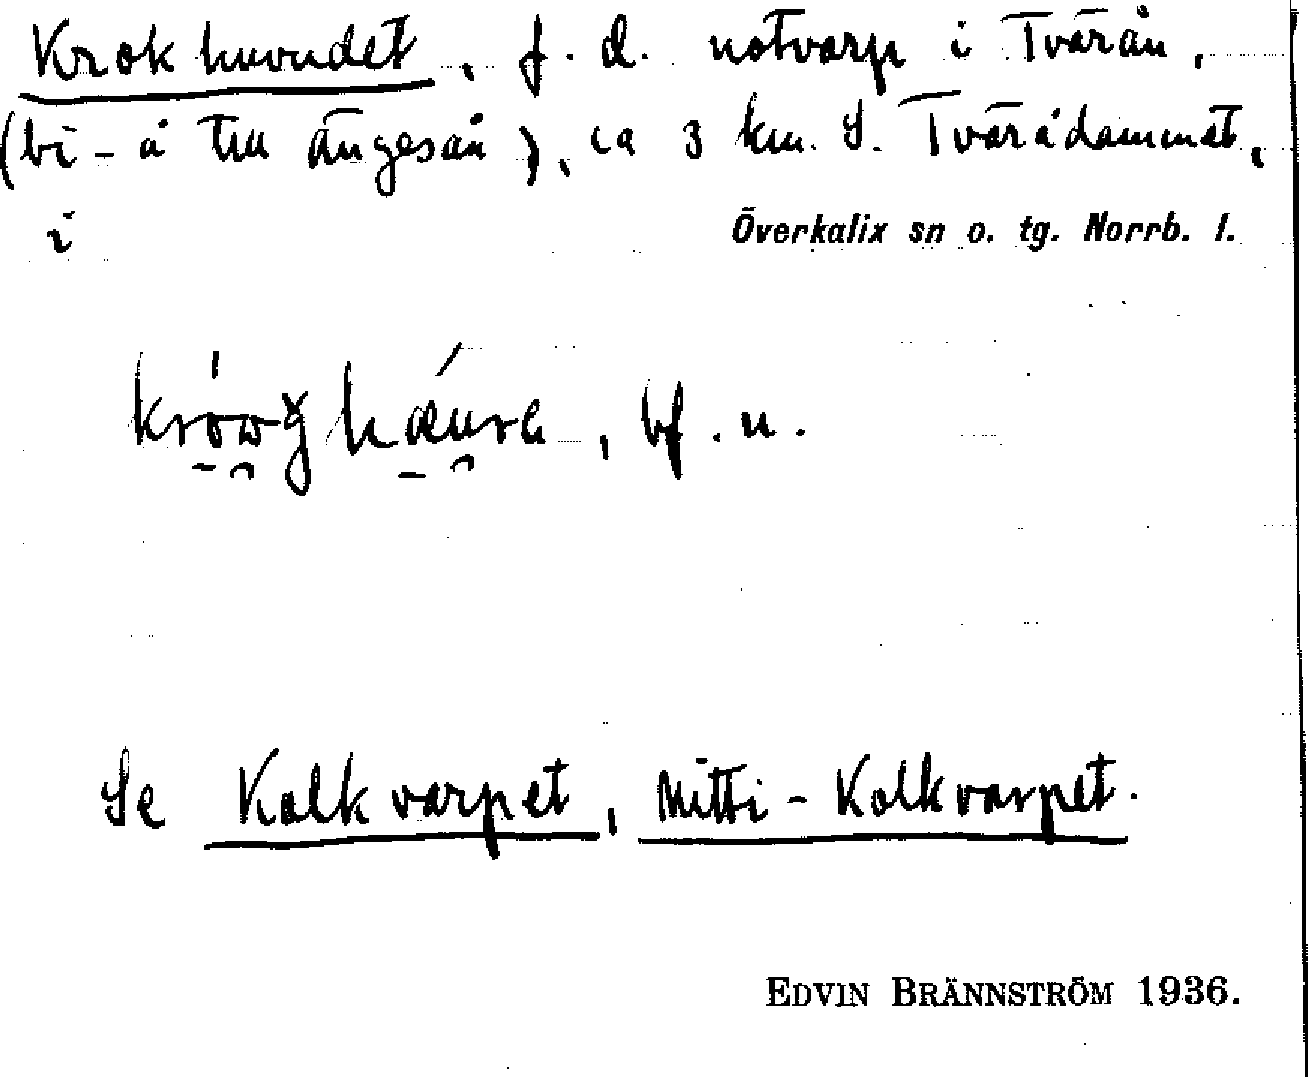 Krokhuvudet, f. d. notvarp i Tvärån,
(bi-å till Ängesån), ca 3 km. S. Tvärådammet,
i Överkalix sn o. tg. Norrb. l.
, bf. n.
Se Kolkvarpet, Mitti-Kolkvarpet.
EDVIN BRÄNNSTRÖM 1936.